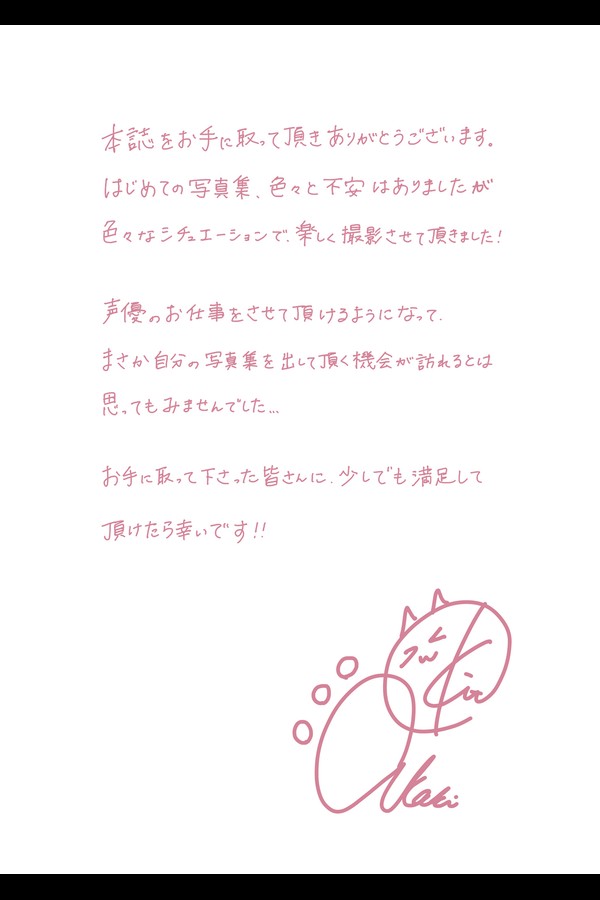 本誌をお手に取って頂きありがとうございます。
はじめての写真集、色々と不安はありましたが
色々なシチュエーションで、楽しく撮影させて頂きました!
声優のお仕事をさせて頂けるようになって、
まさか自分の写真集を出して頂く機会が訪れるとは
思ってもみませんでした...
お手に取って下さった皆さんに、少しでも満足して
頂けたら幸いです!!